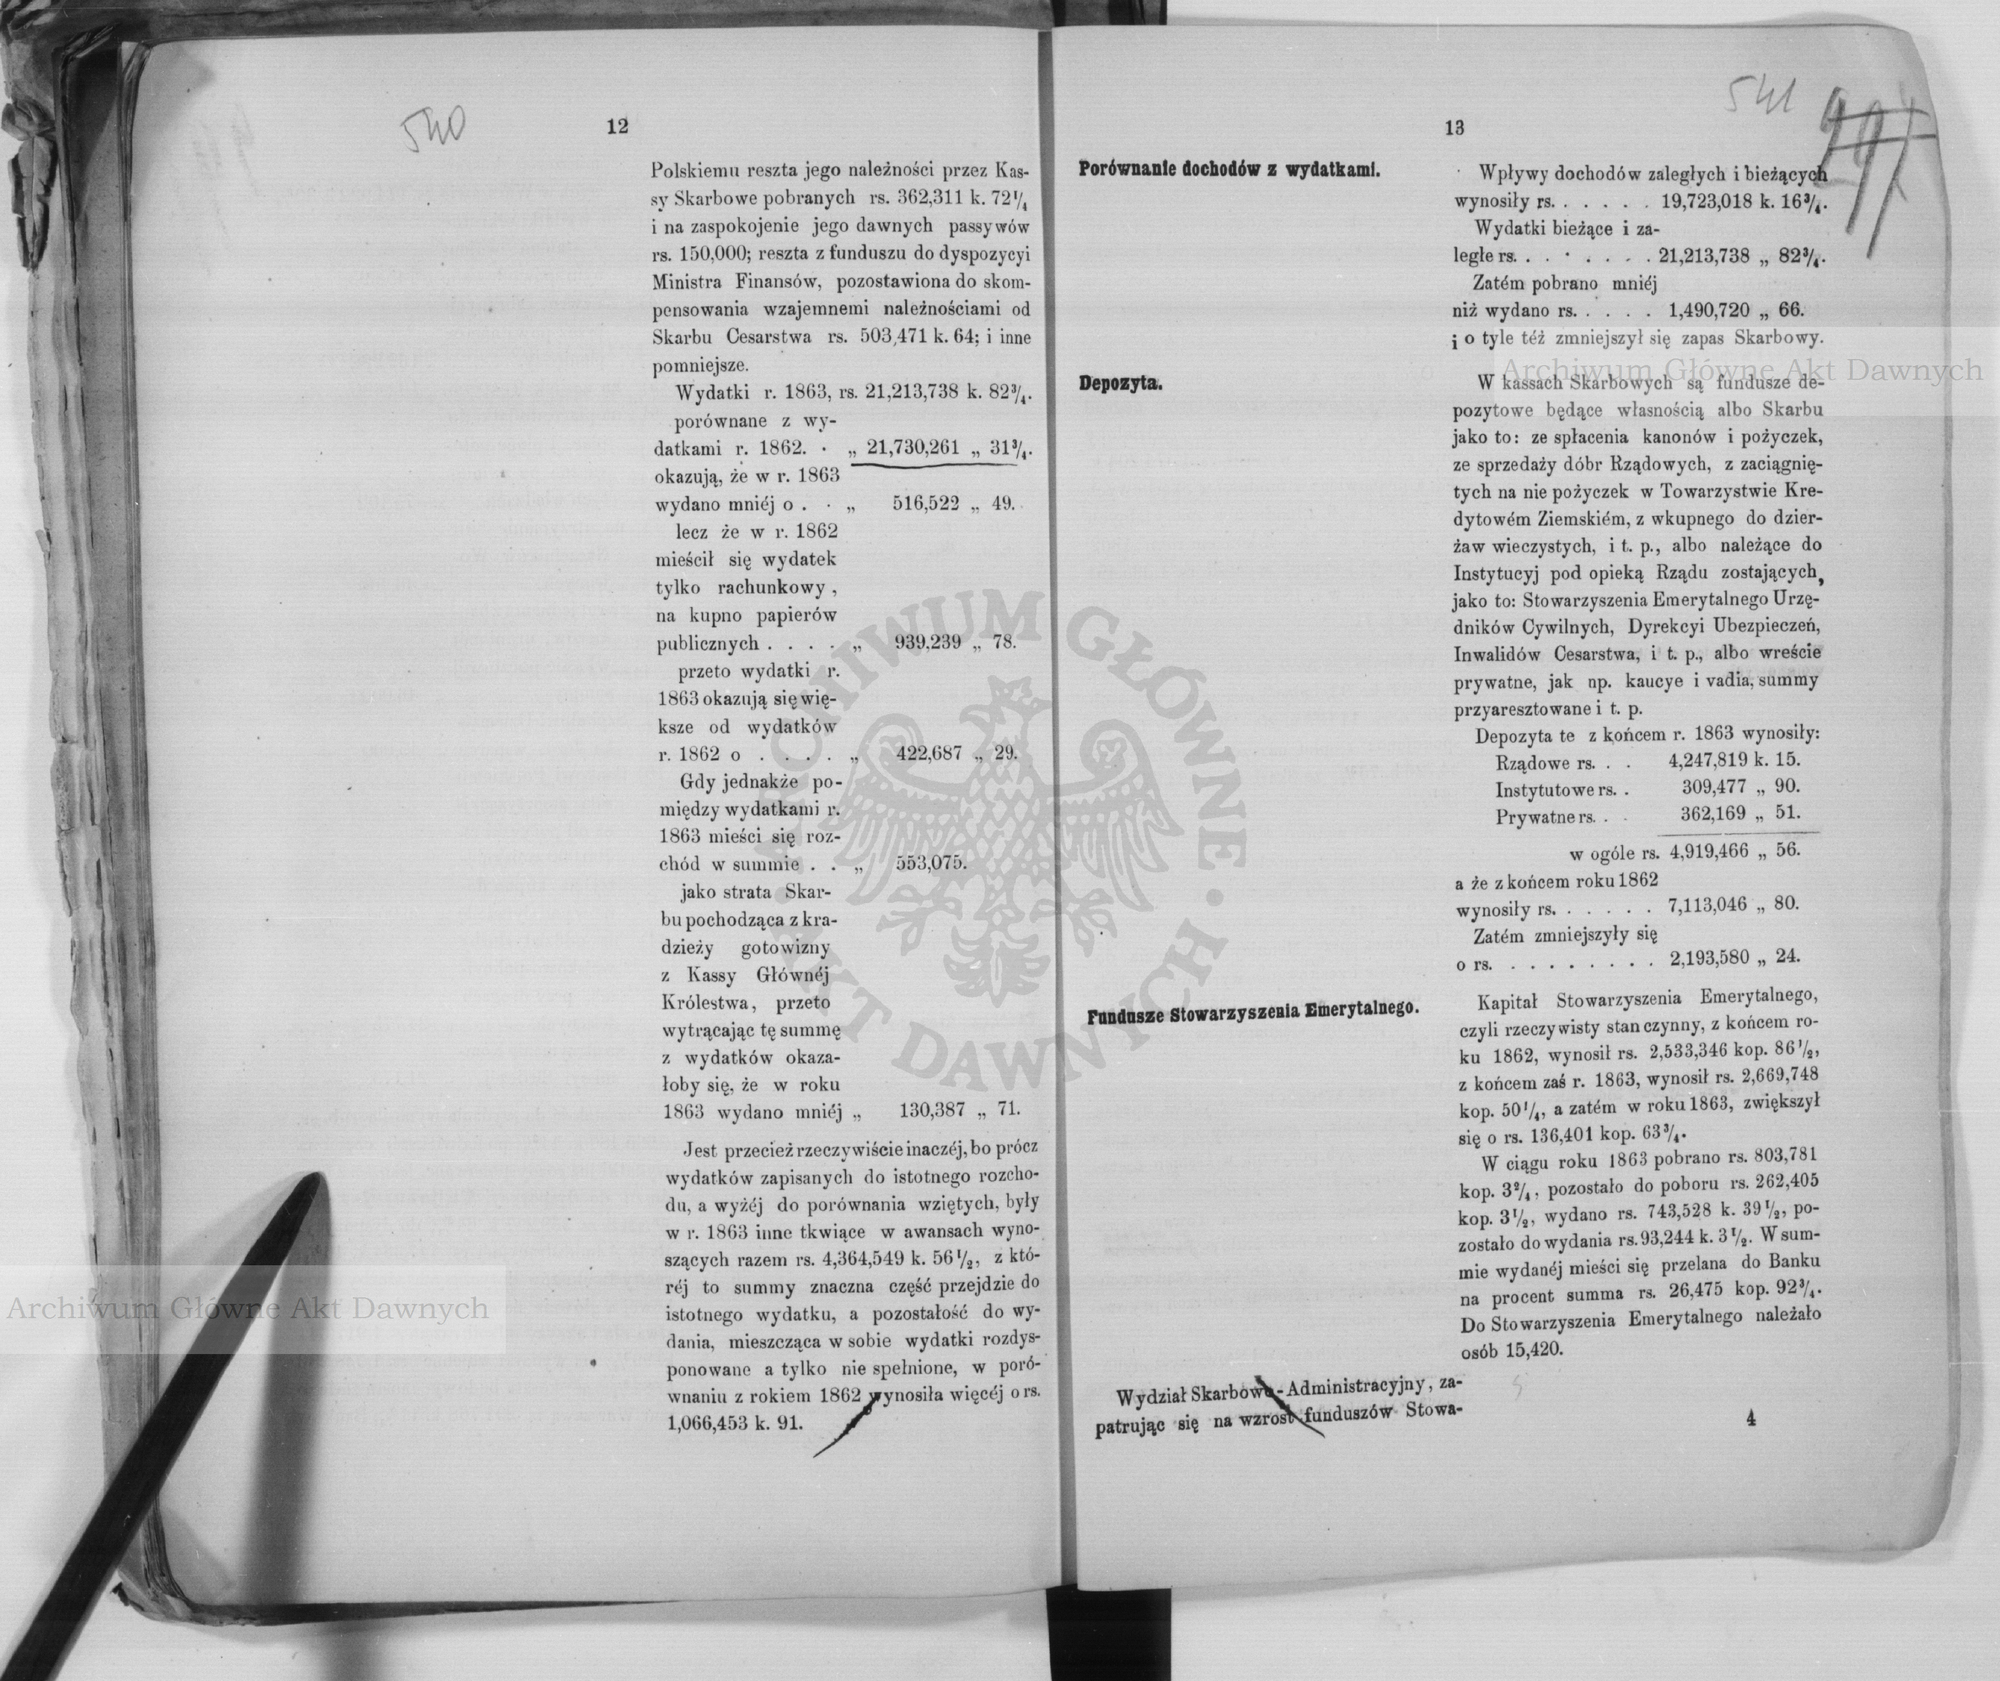 540
12
Polskiemu reszta jego należności przez Kas-
sy Skarbowe pobranych rs. 362,311 k. 72¹/₄
i na zaspokojenie jego dawnych passywów
rs. 150,000; reszta z funduszu do dyspozycyi
Ministra Finansów, pozostawiona do skom-
pensowania wzajemnemi należnościami od
Skarbu Cesarstwa rs. 503,471 k. 64; i inne
pomniejsze.
Wydatki r. 1863, rs. 21,213,738 k. 82³/₄.
porównane z wy-
datkami r. 1862. . „ 21,730,261 „ 31³/₄.
okazują, że w r. 1863
wydano mniéj o . . „ 516,522 „ 49.
lecz że w r. 1862
mieścił się wydatek
tylko rachunkowy,
na kupno papierów
publicznych . . . . „ 939,239 „ 78.
przeto wydatki r.
1863 okazują się wię-
ksze od wydatków
r. 1862 o . . . . „ 422,687 „ 29.
Gdy jednakże po-
między wydatkami r.
1863 mieści się roz-
chód w summie . . „ 553,075.
jako strata Skar-
bu pochodząca z kra-
dzieży gotowizny
z Kassy Głównéj
Królestwa, przeto
wytrącając tę summę
z wydatków okaza-
łoby się, że w roku
1863 wydano mniéj „ 130,387 „ 71.
Jest przecież rzeczywiście inaczéj, bo prócz
wydatków zapisanych do istotnego rozcho-
du, a wyżéj do porównania wziętych, były
w r. 1863 inne tkwiące w awansach wyno-
szących razem rs. 4,364,549 k. 56¹/₂, z któ-
réj to summy znaczna część przejdzie do
istotnego wydatku, a pozostałość do wy-
dania, mieszcząca w sobie wydatki rozdys-
ponowane a tylko nie spełnione, w poró-
wnaniu z rokiem 1862 wynosiła więcéj o rs.
1,066,453 k. 91.
541
13
Porównanie dochodów z wydatkami.
Wpływy dochodów zaległych i bieżących
wynosiły rs. . . . . . 19,723,018 k. 16³/₄.
Wydatki bieżące i za-
ległe rs. . . . . . . . 21,213,738 „ 82³/₄.
Zatém pobrano mniéj
niż wydano rs. . . . . 1,490,720 „ 66.
i o tyle téż zmniejszył się zapas Skarbowy.
Depozyta.
W kassach Skarbowych są fundusze de-
pozytowe będące własnością albo Skarbu
jako to: ze spłacenia kanonów i pożyczek,
ze sprzedaży dóbr Rządowych, z zaciągnię-
tych na nie pożyczek w Towarzystwie Kre-
dytowém Ziemskiém, z wkupnego do dzier-
żaw wieczystych, i t. p., albo należące do
Instytucyj pod opieką Rządu zostających,
jako to: Stowarzyszenia Emerytalnego Urzę-
dników Cywilnych, Dyrekcyi Ubezpieczeń,
Inwalidów Cesarstwa, i t. p., albo wreście
prywatne, jak np. kaucye i vadia, summy
przyaresztowane i t. p.
Depozyta te z końcem r. 1863 wynosiły:
Rządowe rs. . . 4,247,819 k. 15.
Instytutowe rs. . 309,477 „ 90.
Prywatne rs. . . 362,169 „ 51.
w ogóle rs. 4,919,466 „ 56.
a że z końcem roku 1862
wynosiły rs. . . . . . 7,113,046 „ 80.
Zatém zmniejszyły się
o rs. . . . . . . . . 2,193,580 „ 24.
Fundusze Stowarzyszenia Emerytalnego.
Kapitał Stowarzyszenia Emerytalnego,
czyli rzeczywisty stan czynny, z końcem ro-
ku 1862, wynosił rs. 2,533,346 kop. 86¹/₂,
z końcem zaś r. 1863, wynosił rs. 2,669,748
kop. 50¹/₄, a zatém w roku 1863, zwiększył
się o rs. 136,401 kop. 63³/₄.
W ciągu roku 1863 pobrano rs. 803,781
kop. 3²/₄, pozostało do poboru rs. 262,405
kop. 3¹/₂, wydano rs. 743,528 k. 39¹/₂, po-
zostało do wydania rs. 93,244 k. 3¹/₂. W sum-
mie wydanéj mieści się przelana do Banku
na procent summa rs. 26,475 kop. 92³/₄.
Do Stowarzyszenia Emerytalnego należało
osób 15,420.
Wydział Skarbowo-Administracyjny, za-
patrując się na wzrost funduszów Stowa-
4
ARCHIWUM GŁÓWNE · AKT DAWNYCH ·
Archiwum Główne Akt Dawnych
Archiwum Główne Akt Dawnych